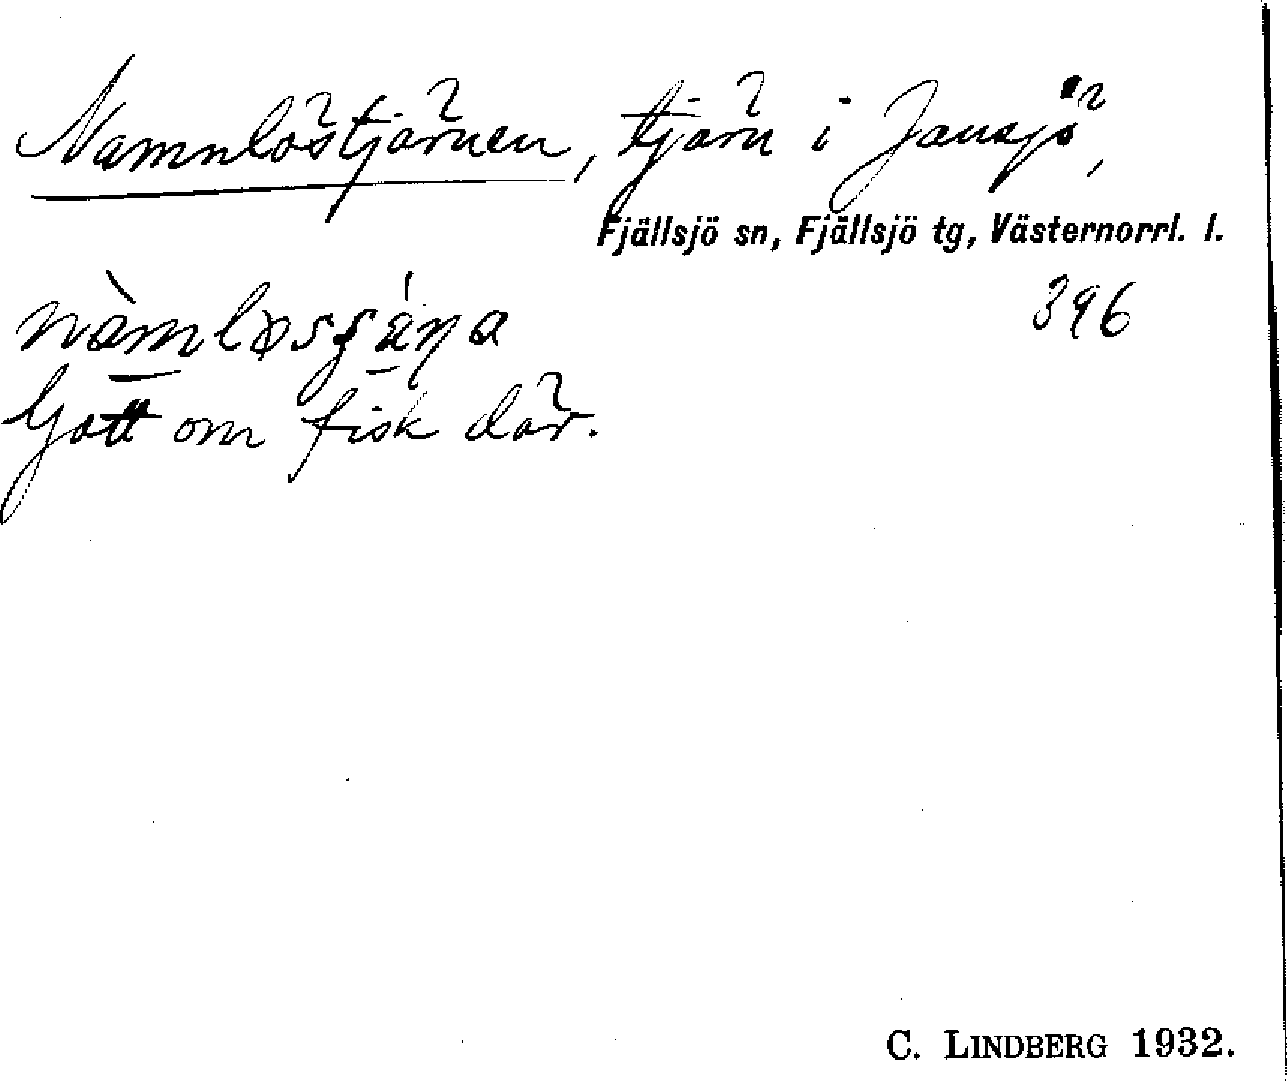 Namnlöstjärnen, tjärn i Jansjö,
Fjällsjö sn, Fjällsjö tg, Västernorrl. l.
396
Gott om fisk där.
C. LINDBERG 1932.